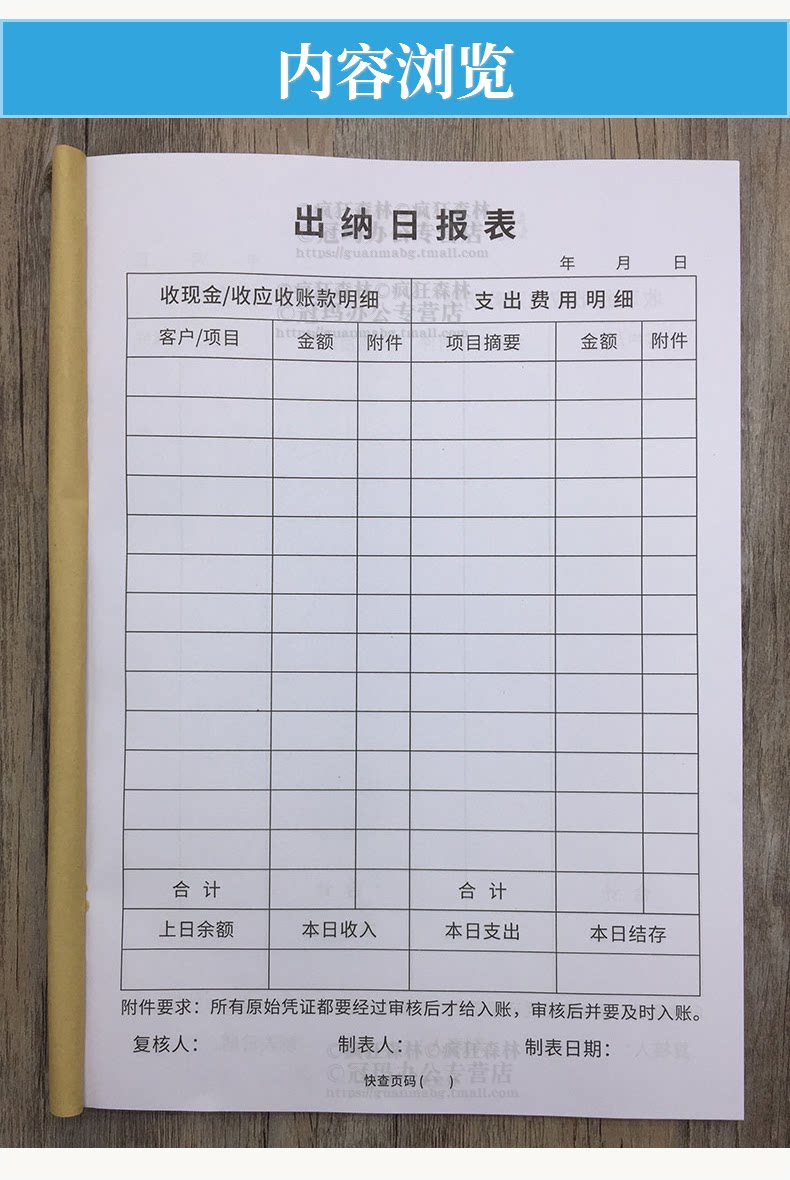 内容浏览
©疯狂森林©疯狂森林
出纳日报表
©冠玛办公专营店
https://guanmabg.tmall.com
年 月 日
收现金/收应收账款明细 支出费用明细
©疯狂森林©疯狂森林
©冠玛办公专营店
https://guanmabg.tmall.com
客户/项目 金额 附件 项目摘要 金额 附件
合计 合计
上日余额 本日收入 本日支出 本日结存
附件要求：所有原始凭证都要经过审核后才给入账，审核后并要及时入账。
复核人： 制表人： 制表日期：
©疯狂森林©疯狂森林
©冠玛办公专营店
快查页码( )
https://guanmabg.tmall.com